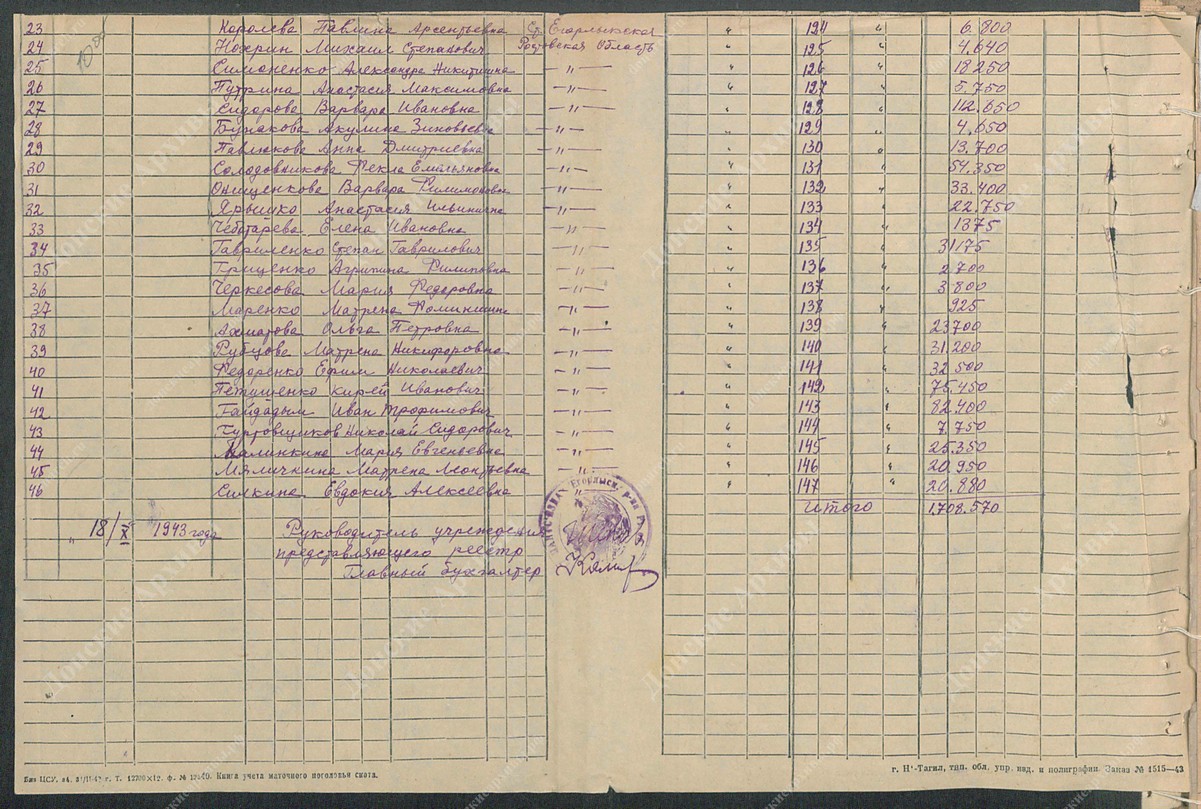 23 Королева Павлина Арсентьевна Ст. Егорлыкская " 124 " 6.800
24 Нохрин Михаил Степанович Ростовская область " 125 " 4.640
25 Симоненко Александра Никитишна —"— " 126 " 18250
26 Путрина Анастасия Максимовна —"— " 127 " 5.750
27 Сидорова Варвара Ивановна —"— " 128 " 112.650
28 Бунакова Акулина Зиновьевна —"— " 129 " 4.650
29 Павлюкова Анна Дмитриевна —"— " 130 " 13.700
30 Солодовникова Фекла Емельяновна —"— " 131 " 54.350
31 Онищенкова Варвара Филимоновна —"— " 132 " 33.400
32 Ярышко Анастасия Ильинична —"— " 133 " 22.750
33 Чеботарева Елена Ивановна —"— " 134 " 1375
34 Гавриленко Степан Гаврилович —"— " 135 " 31175
35 Гриценко Агрипина Филиповна —"— " 136 " 2.700
36 Черкесова Мария Федоровна —"— " 137 " 3.800
37 Маренко Матрена Фоминишна —"— " 138 " 925
38 Ахматова Ольга Петровна —"— " 139 " 23700
39 Рубцова Матрена Никифоровна —"— " 140 " 31.200
40 Федоренко Ефим Николаевич —"— " 141 " 32.500
41 Петишенко Кирей Иванович —"— " 142 " 75.450
42 Гайдадым Иван Трофимович —"— " 143 " 82.400
43 Буртовщиков Николай Сидорович —"— " 144 " 7.750
44 Малинкина Мария Евгеньевна —"— " 145 " 25.350
45 Мяличкина Матрена Леонтьевна —"— " 146 " 20.950
46 Силкина Евдокия Алексеевна " 147 " 20.880
Итого 1.708.570
" 18/X 1943 года Руководитель учреждения
представляющего реестр
Главный бухгалтер
г. Н-Тагил, тип. обл. упр. изд. и полиграфии. Заказ № 1515—43
Книга учета маточного поголовья скота.
Донские Архивы